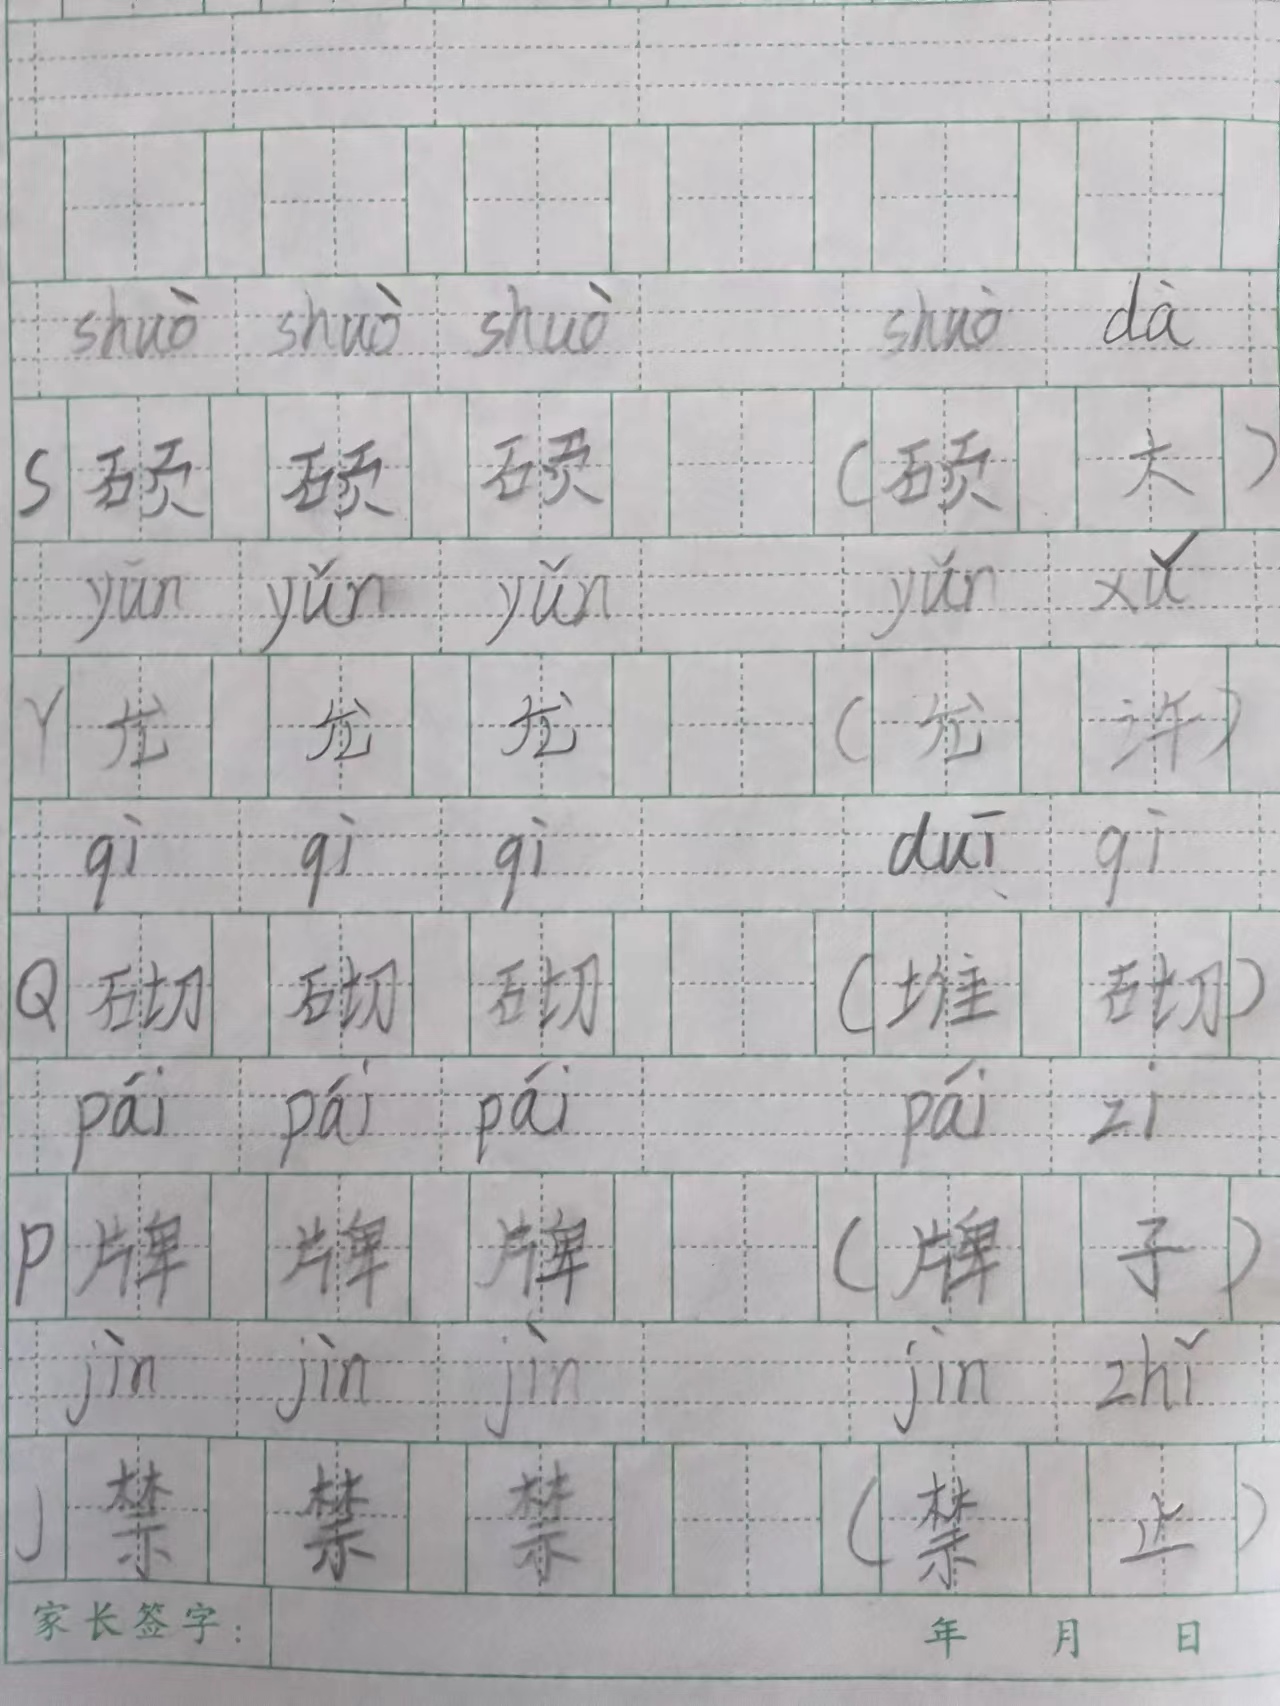 shuò shuò shuò shuò dà
S 硕 硕 硕 (硕 大)
yǔn yǔn yǔn yǔn xǔ
Y 允 允 允 (允 许)
qì qì qì duī qì
Q 砌 砌 砌 (堆 砌)
pái pái pái pái zi
P 牌 牌 牌 (牌 子)
jìn jìn jìn jìn zhǐ
J 禁 禁 禁 (禁 止)
家长签字: 年 月 日